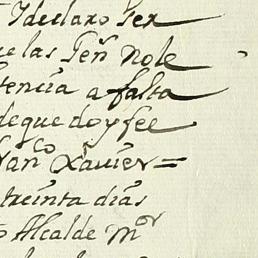 Ydeclaro Ser
e las Señ Nole
tencia a falta
de que doy fee
Franco Xavier =
treinta dias
o Alcalde Mor